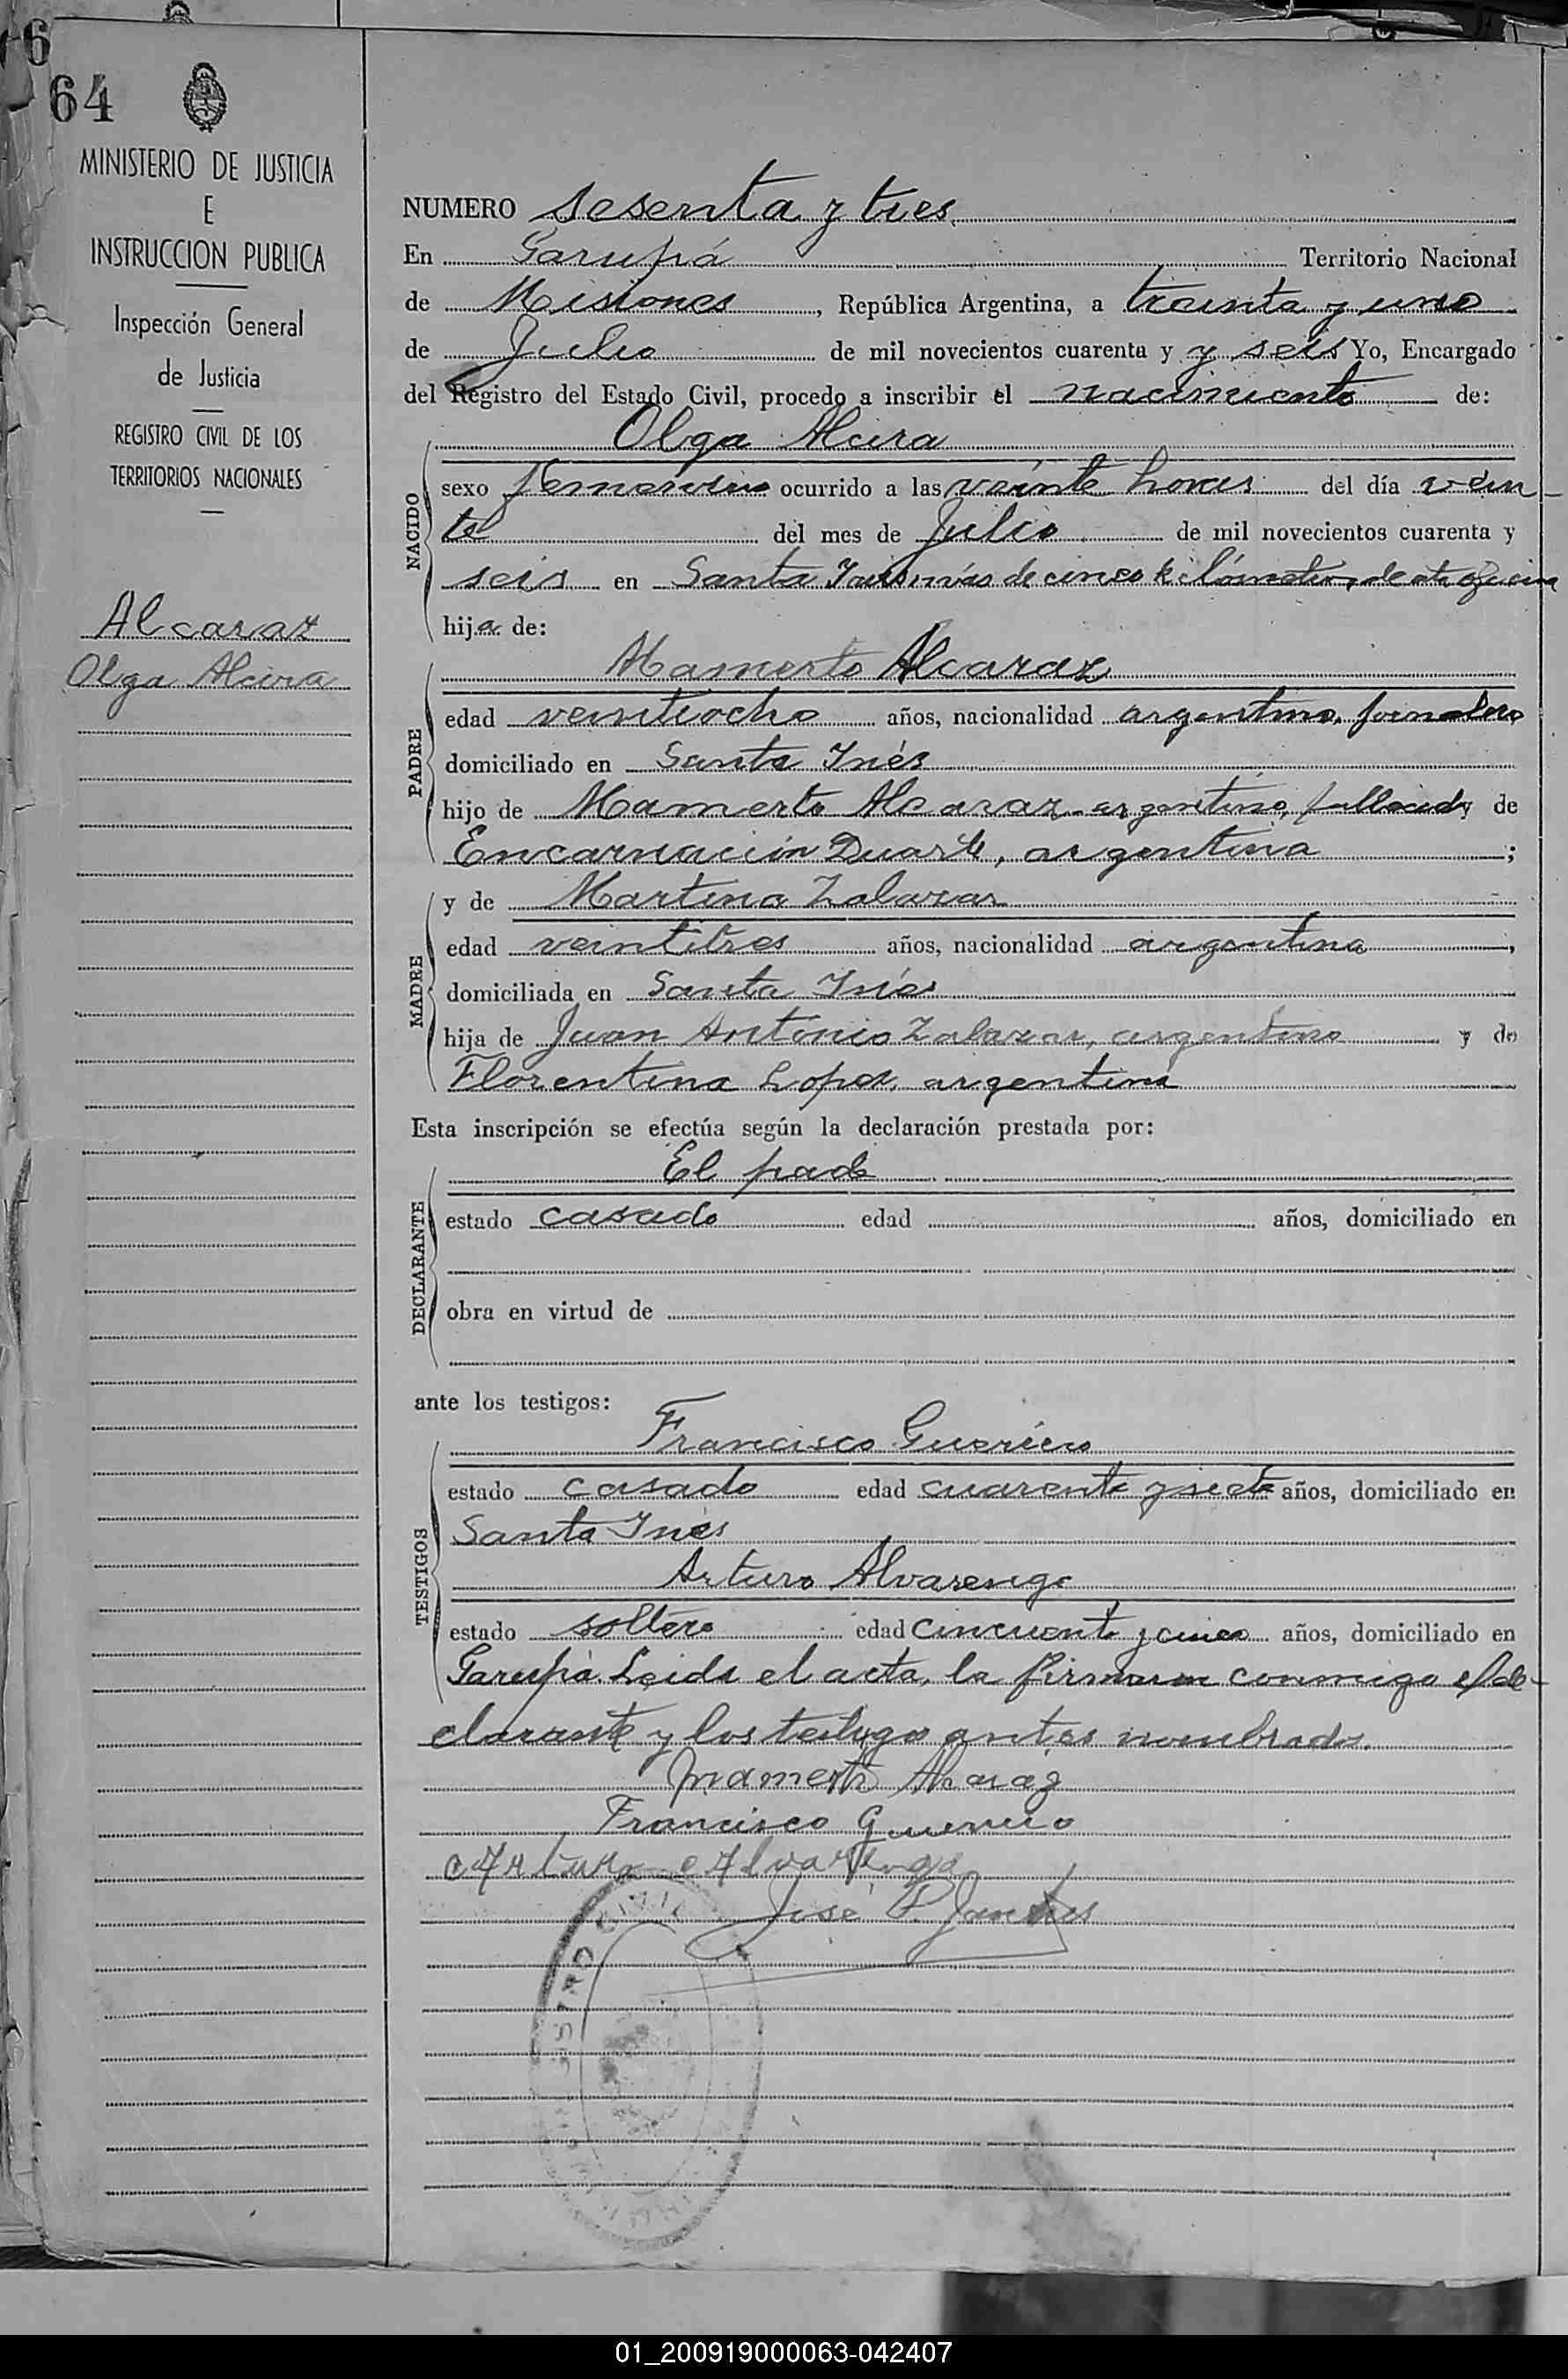 64
MINISTERIO DE JUSTICIA
E
INSTRUCCION PUBLICA
Inspección General
de Justicia
REGISTRO CIVIL DE LOS
TERRITORIOS NACIONALES
Alcaraz
Olga Alcira
NUMERO sesenta y tres
En Garupá Territorio Nacional
de Misiones, República Argentina, a treinta y uno
de Julio de mil novecientos cuarenta y y seis Yo, Encargado
del Registro del Estado Civil, procedo a inscribir el nacimiento de:
Olga Alcira
NACIDO
sexo femenino ocurrido a las veinte horas del día vein-
te del mes de Julio de mil novecientos cuarenta y
seis en Santa Inés más de cinco kilómetros de esta oficina
hija de:
Mamerto Alcaraz
PADRE
edad veintiocho años, nacionalidad argentino, jornalero
domiciliado en Santa Inés
hijo de Mamerto Alcaraz argentino, fallecido y de
Encarnación Duarte, argentina;
y de Martina Zalazar
MADRE
edad veintitres años, nacionalidad argentina,
domiciliada en Santa Inés
hija de Juan Antonio Zalazar, argentino y de
Florentina Lopez, argentina
Esta inscripción se efectúa según la declaración prestada por:
El padre
DECLARANTE
estado casado edad años, domiciliado en
obra en virtud de
ante los testigos:
Francisco Guerrero
TESTIGOS
estado casado edad cuarenta y siete años, domiciliado en
Santa Inés
Arturo Alvarenga
estado soltero edad cincuenta y cinco años, domiciliado en
Garupá. Leida el acta, la firman conmigo el de-
clarante y los testigos antes nombrados.
Mamerto Alcaraz
Francisco Guerrero
Arturo Alvarenga
José
01_200919000063-042407